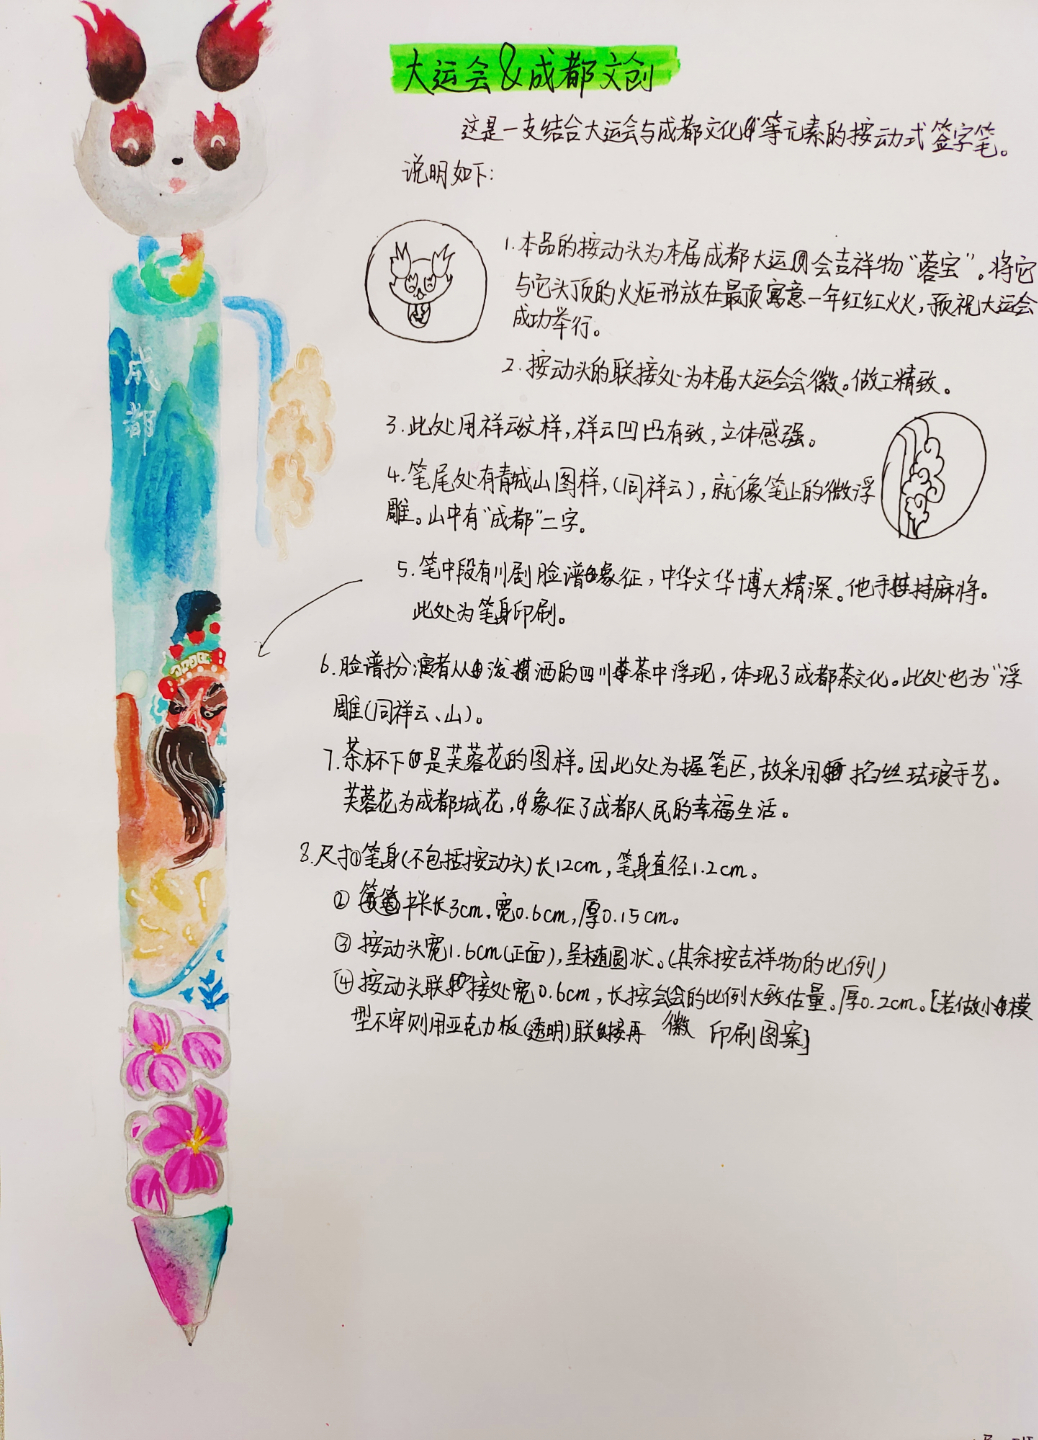 大运会&成都文创
这是一支结合大运会与成都文化等元素的按动式签字笔。
说明如下:
1.本品的按动头为本届成都大运会吉祥物“蓉宝”。将它
与它头顶的火炬形放在最顶寓意一年红红火火,预祝大运会
成功举行。
2.按动头的联接处为本届大运会会徽。做工精致。
3.此处用祥云纹样,祥云凹凸有致,立体感强。
4.笔尾处有青城山图样,(同祥云),就像笔上的微浮
雕。山中有“成都”二字。
成都
5.笔中段有川剧脸谱象征,中华文华博大精深。他手持麻将。
此处为笔身印刷。
6.脸谱扮演者从泼洒的四川茶中浮现,体现了成都茶文化。此处也为“浮
雕(同祥云、山)。
7.茶杯下是芙蓉花的图样。因此处为握笔区,故采用掐丝珐琅手艺。
芙蓉花为成都城花,象征了成都人民的幸福生活。
8.尺寸①笔身(不包括按动头)长12cm,笔身直径1.2cm。
②长3cm.宽0.6cm,厚0.15cm。
③按动头宽1.6cm(正面),呈椭圆状。(其余按吉祥物的比例)
④按动头联接处宽0.6cm,长按会会的比例大致估量。厚0.2cm。[若做小模
型不牢则用亚克力板(透明)联接再 徽 印刷图案]